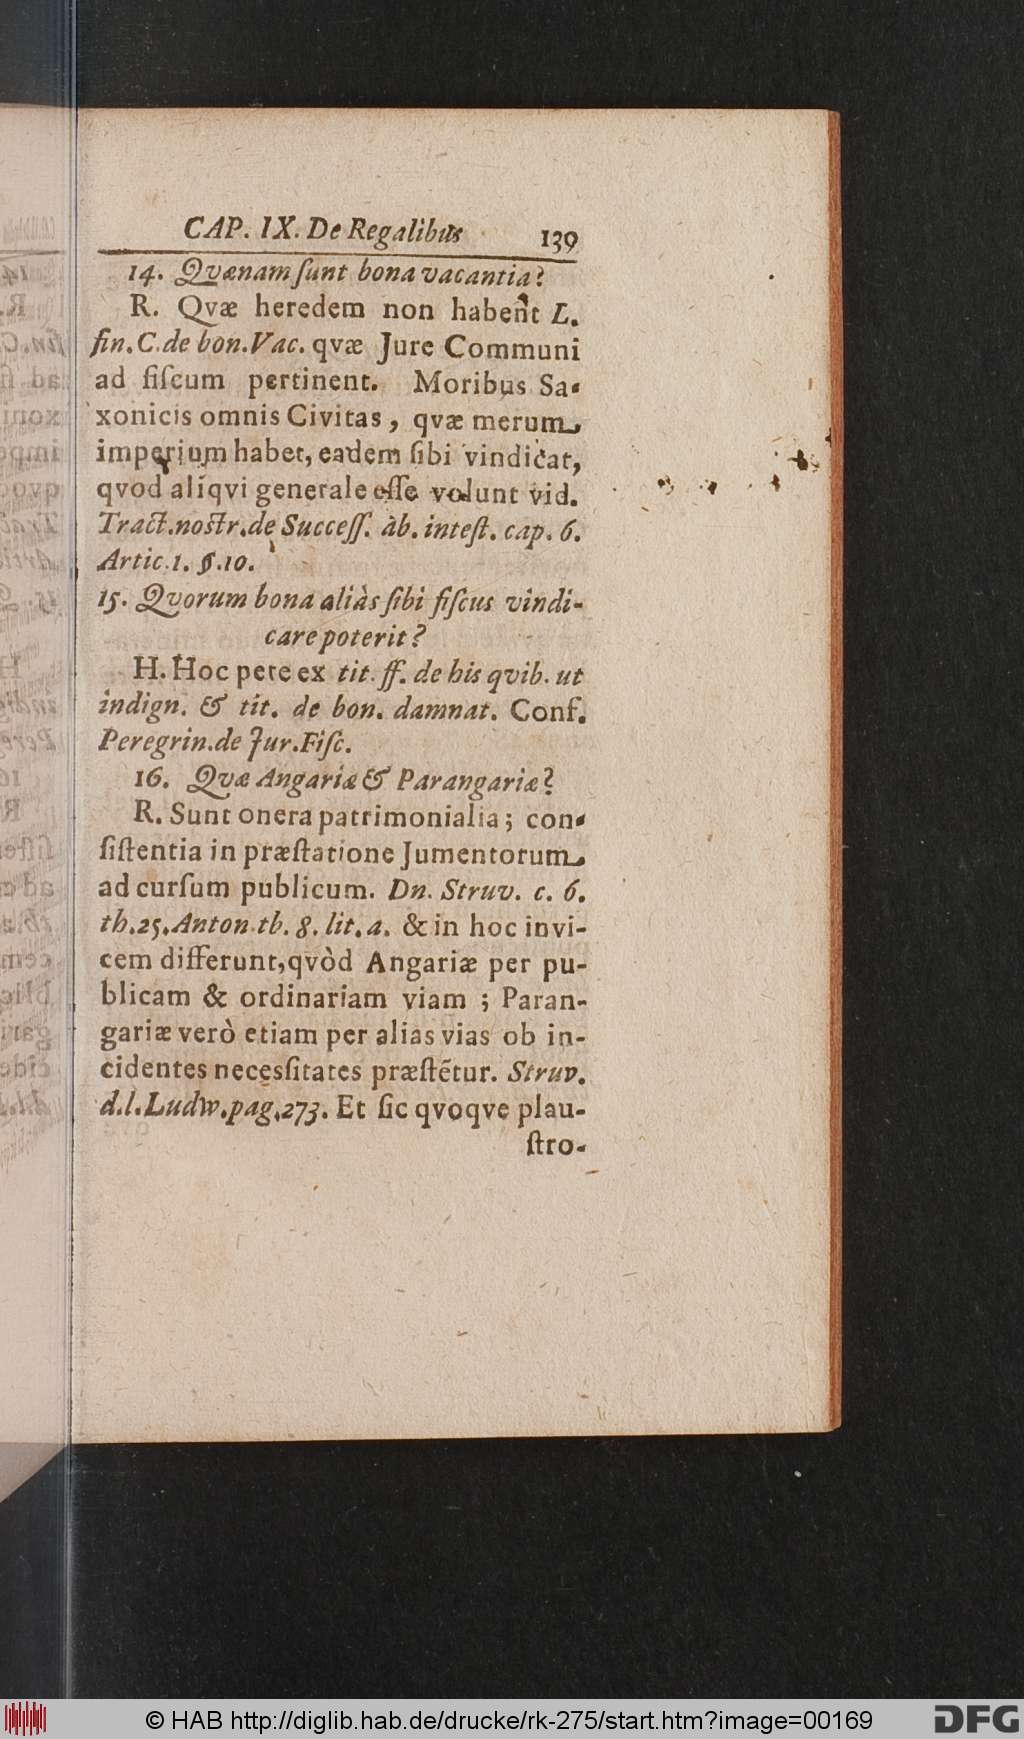 CAP. IX. De Regalibus 139
14. Qvænam ſunt bona vacantia?
R. Qvæ heredem non habent L.
fin. C. de bon. Vac. qvæ Jure Communi
ad fiſcum pertinent. Moribus Sa-
xonicis omnis Civitas, qvæ merum
imperium habet, eadem ſibi vindicat,
qvod aliqvi generale eſſe volunt vid.
Tract. noſtr. de Succeſſ. àb. inteſt. cap. 6.
Artic. 1. §. 10.
15. Qvorum bona aliàs ſibi fiſcus vindi-
care poterit?
H. Hoc pete ex tit. ff. de his qvib. ut
indign. & tit. de bon. damnat. Conf.
Peregrin. de Jur. Fiſc.
16. Qvæ Angariæ & Parangariæ?
R. Sunt onera patrimonialia; con-
ſiſtentia in præſtatione Jumentorum
ad curſum publicum. Dn. Struv. c. 6.
th. 25. Anton. th. 8. lit. a. & in hoc invi-
cem differunt, qvòd Angariæ per pu-
blicam & ordinariam viam; Paran-
gariæ verò etiam per alias vias ob in-
cidentes neceſſitates præſtẽtur. Struv.
d. l. Ludw. pag. 273. Et ſic qvoqve plau-
ſtro-
© HAB http://diglib.hab.de/drucke/rk-275/start.htm?image=00169
DFG